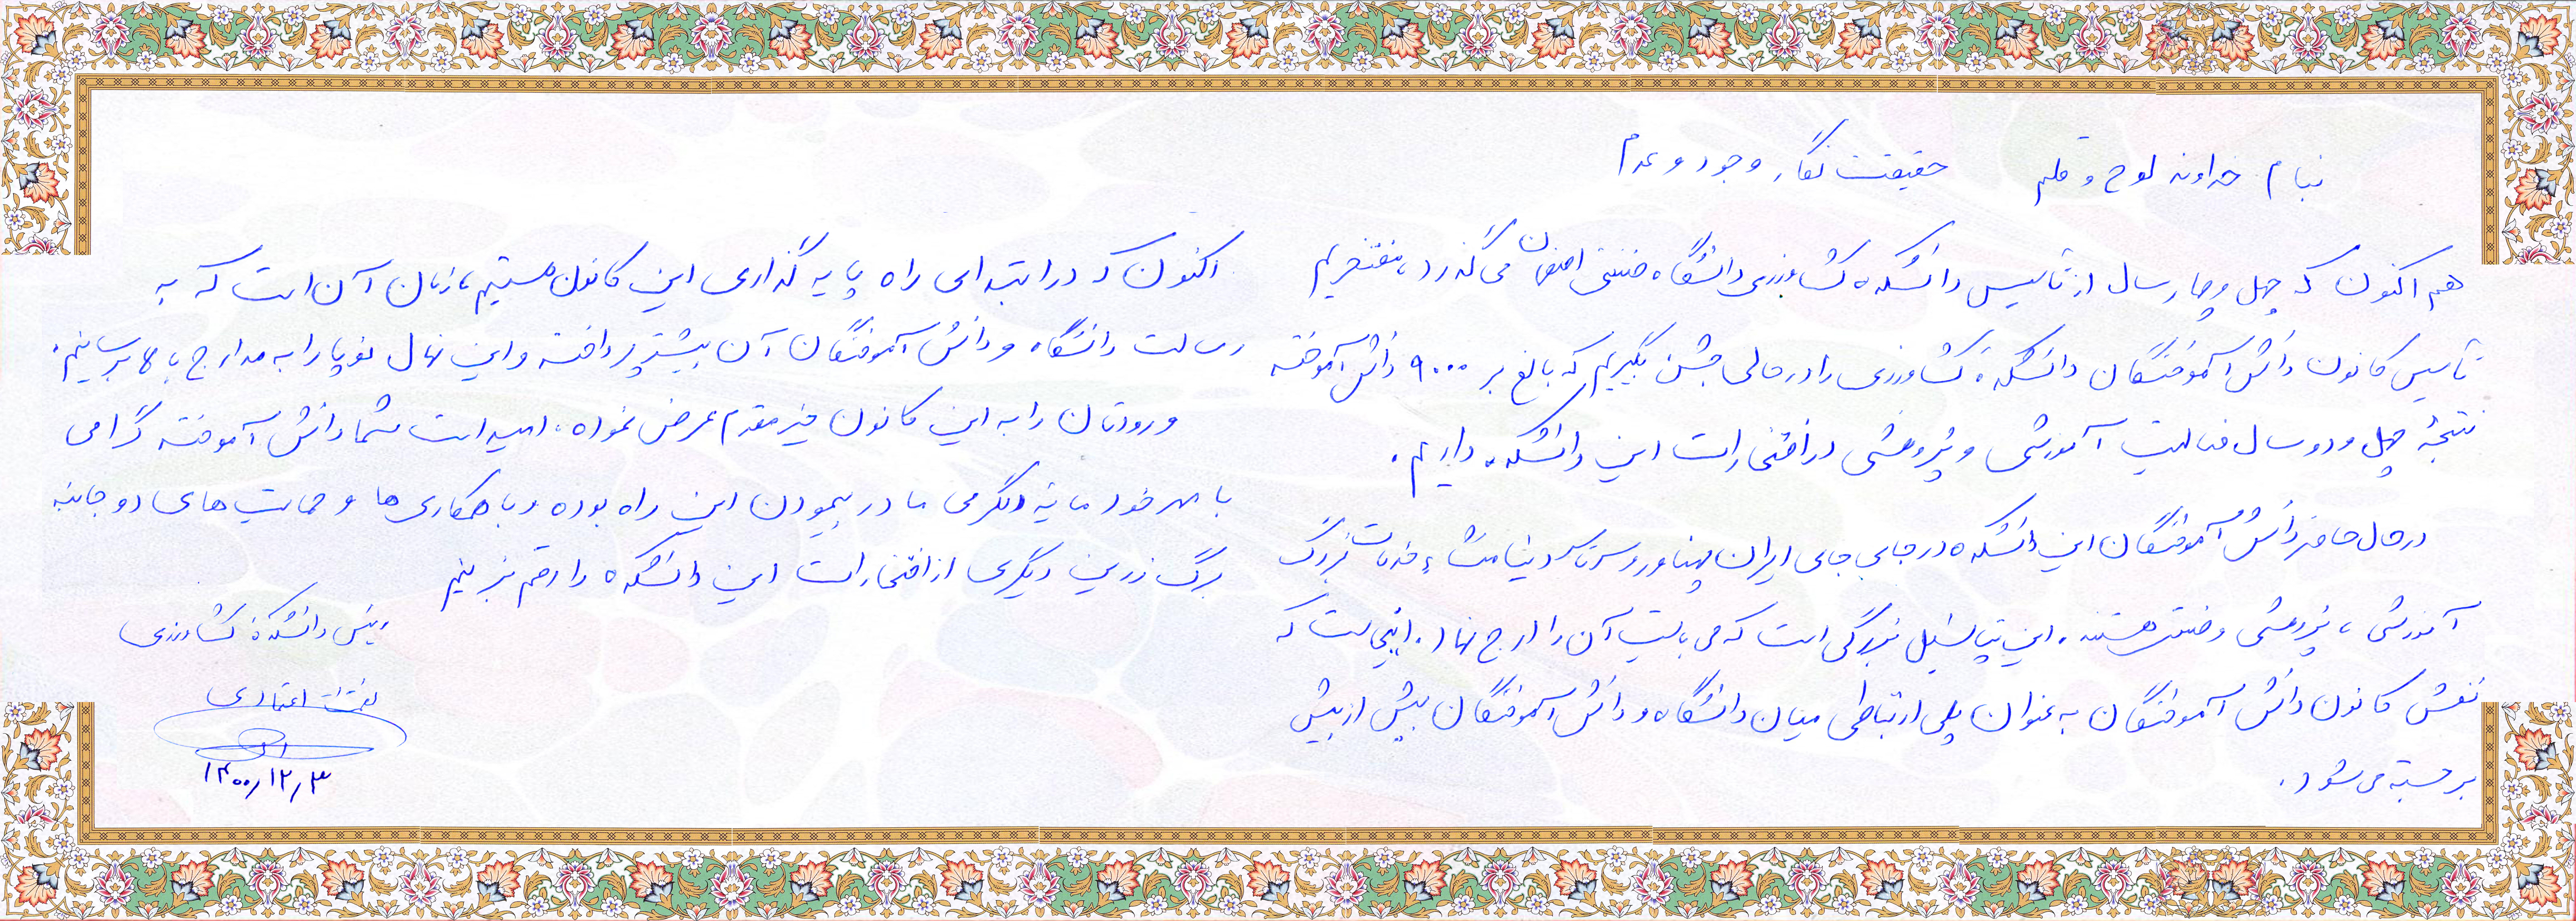 بنام خداوند لوح و قلم حقیقت نگار وجود و عدم
هم اکنون که چهل و چهار سال از تأسیس دانشکده کشاورزی دانشگاه صنعتی اصفهان می گذرد، مفتخریم
تأسیس کانون دانش آموختگان دانشکدهٔ کشاورزی را در حالی جشن بگیریم که بالغ بر ۹۰۰۰ دانش آموخته
نتیجهٔ چهل و دو سال فعالیت آموزشی و پژوهشی در افتخارات این دانشکده داریم.
در حال حاضر دانش آموختگان این دانشکده در جای جای ایران پهناور و سرتاسر دنیا منشاء خدمات بزرگ
آموزشی، پژوهشی و صنعتی هستند. این پتانسیل بزرگی است که می بایست آن را ارج نهاد. اینجاست که
نقش کانون دانش آموختگان به عنوان پلی ارتباطی میان دانشگاه و دانش آموختگان بیش از پیش
برجسته می شود.
اکنون که در ابتدای راه پایه گذاری این کانون هستیم، زمان آن است که به
رسالت دانشگاه و دانش آموختگان آن بیشتر پرداخته و این نهال نوپا را به مدارج بالا برسانیم.
ورودتان را به این کانون خیر مقدم عرض نموده، امید است شما دانش آموخته گرامی
با مهر خود مایه دلگرمی ما در پیمودن این راه بوده و با همکاری ها و حمایت های دو جانبه
برگ زرین دیگری از افتخارات این دانشکده را رقم بزنیم
رییس دانشکدهٔ کشاورزی
نعمت اله اعتمادی
۱۴۰۰/۱۲/۳